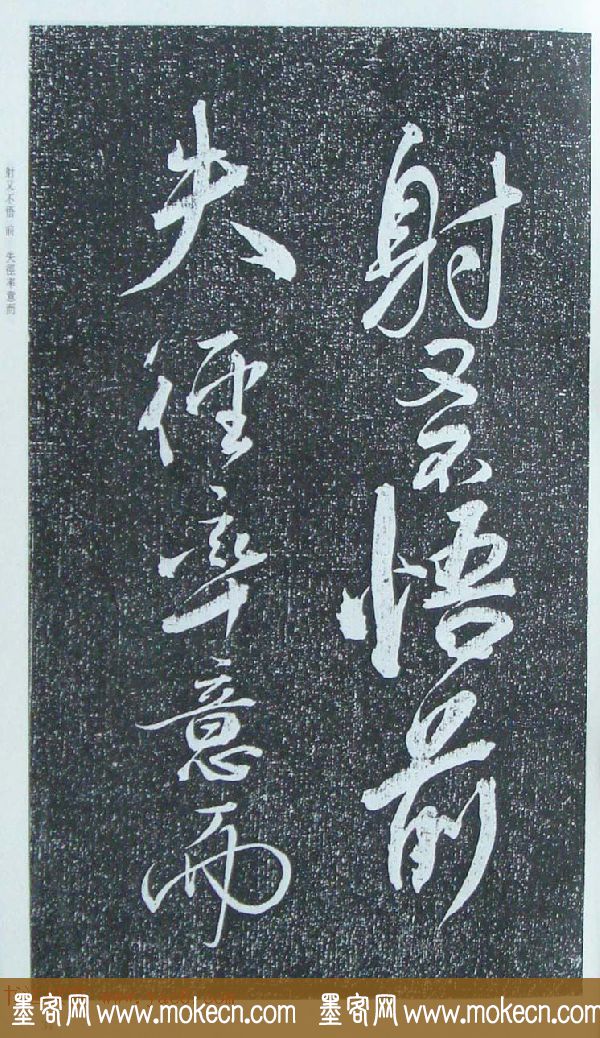 射又不悟前
失徑率意而
射又不悟 前 失徑率意而
墨客网 www.mokecn.com 墨客网 www.mokecn.com